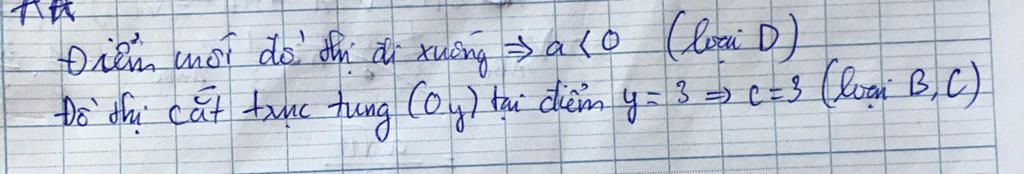 Điểm mới đồ thị đi xuống ⇒ a < 0 (loại D)
Đồ thị cắt trục tung (Oy) tại điểm y = 3 ⇒ c = 3 (loại B, C)